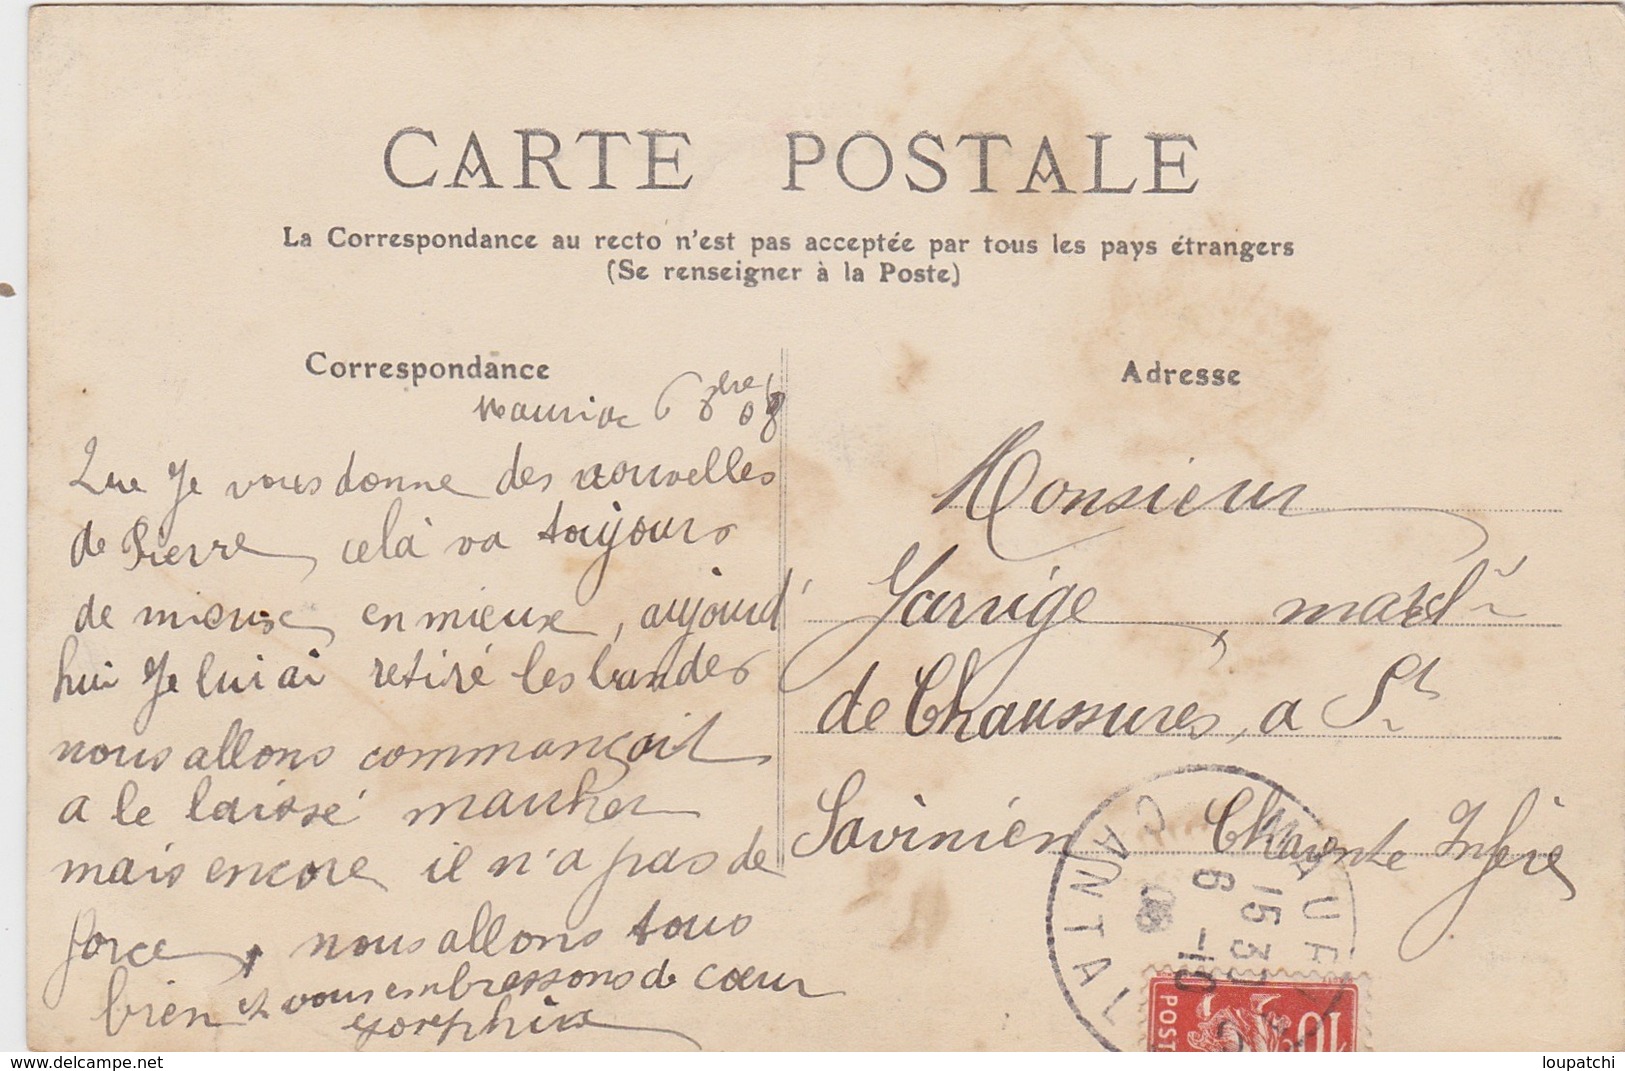 CARTE POSTALE
La Correspondance au recto n'est pas acceptée par tous les pays étrangers
(Se renseigner à la Poste)
Correspondance
Mauriac 6 8bre 08
Que je vous donne des nouvelles
de Pierre, celà va toujours
de mieux en mieux, aujourd'
hui je lui ai retiré les bandes
nous allons commançait
a le laissé marcher
mais encore il n'a pas de
force, nous allons tous
bien et vous embrassons de cœur
Adresse
Monsieur
Garrige, march
de Chaussures, a St
Savinien Charente Infre
MAURIAC
CANTAL
15 30
6 -10
08
10
POST
delcampe.net
loupatchi